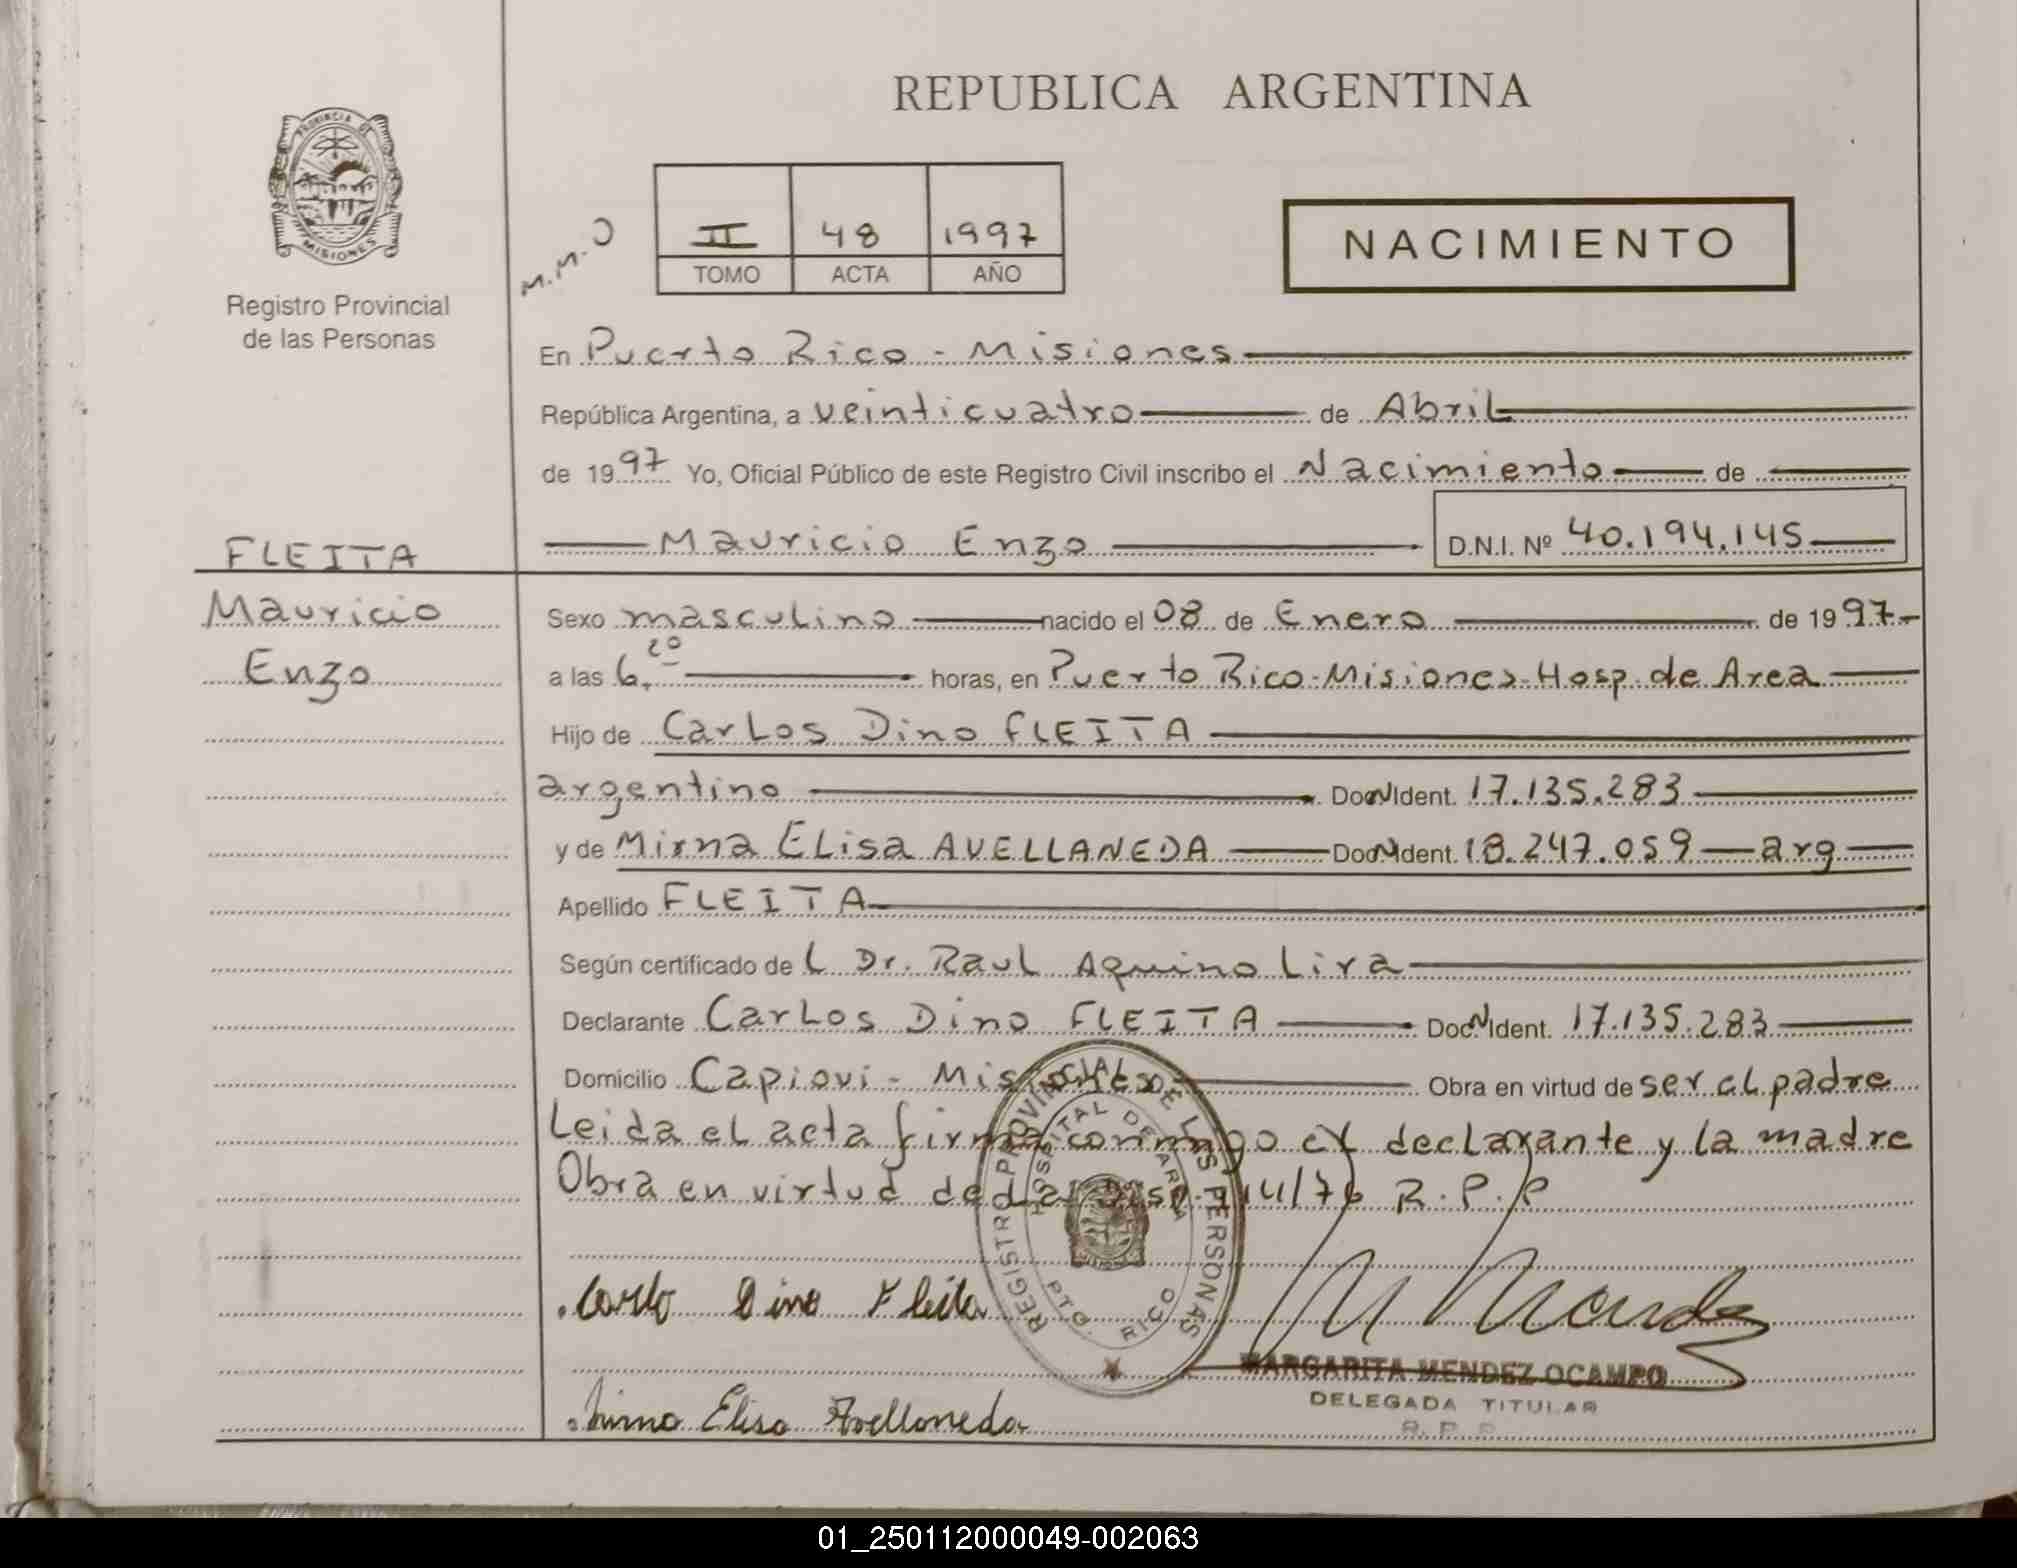 REPUBLICA ARGENTINA
PROVINCIA DE MISIONES
Registro Provincial
de las Personas
M.M.O
II 48 1997
TOMO ACTA AÑO
NACIMIENTO
En Puerto Rico - Misiones
República Argentina, a veinticuatro de Abril
de 1997 Yo, Oficial Público de este Registro Civil inscribo el Nacimiento de
Mauricio Enzo D.N.I. Nº 40.194.145
FLEITA
Mauricio
Enzo
Sexo masculino nacido el 08 de Enero de 1997.-
a las 6.20 horas, en Puerto Rico-Misiones-Hosp. de Area
Hijo de Carlos Dino FLEITA
argentino Doc.N Ident. 17.135.283
y de Mirna Elisa AVELLANEDA Doc.N Ident. 18.247.059 arg
Apellido FLEITA
Según certificado de l Dr. Raul Aquino Lira
Declarante Carlos Dino FLEITA Doc.N Ident. 17.135.283
Domicilio Capiovi - Misiones Obra en virtud de ser el padre
Leida el acta firma conmigo el declarante y la madre
Obra en virtud de la Disp. R.P.P
Carlo Dino Fleita
REGISTRO PROVINCIAL DE LAS PERSONAS
HOSPITAL DE AREA
PTO. RICO
MARGARITA MENDEZ OCAMPO
DELEGADA TITULAR
R. P. P
Mirna Elisa Avellaneda
01_250112000049-002063